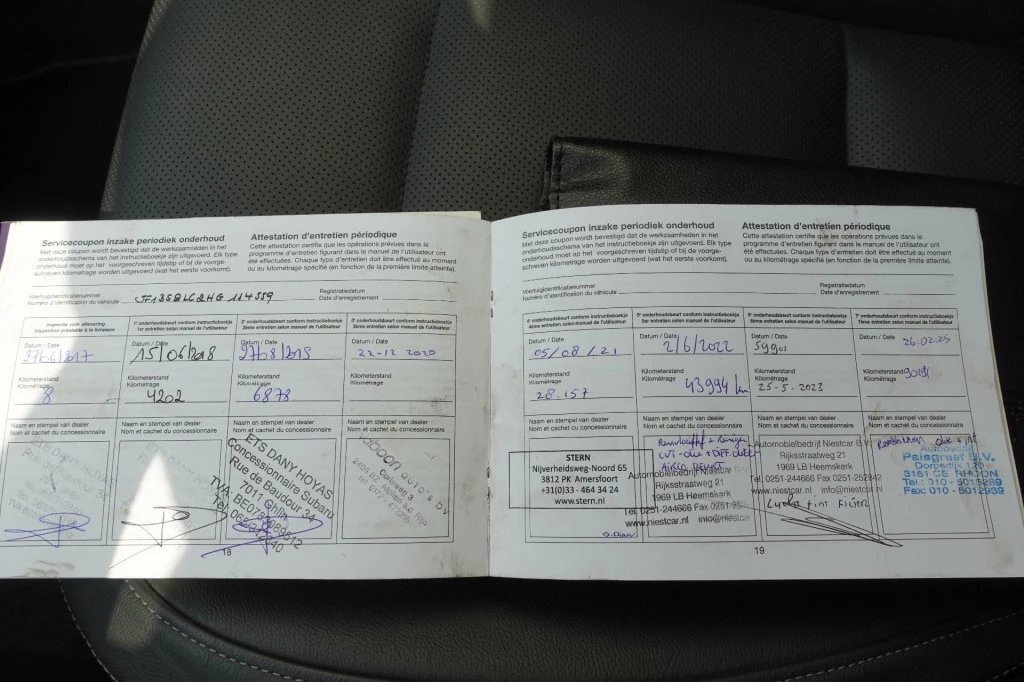 Servicecoupon inzake periodiek onderhoud
Met deze coupon wordt bevestigd dat de werkzaamheden in het
onderhoudsschema van het instructieboekje zijn uitgevoerd. Elk type
onderhoud moet op het voorgeschreven tijdstip of bij de voorge-
schreven kilometrage worden uitgevoerd (wat het eerste voorkomt).
Attestation d'entretien périodique
Cette attestation certifie que les opérations prévues dans le
programme d'entretien figurant dans le manuel de l'utilisateur ont
été effectuées. Chaque type d'entretien doit être effectué au moment
ou au kilométrage spécifié (en fonction de la première limite atteinte).
Voertuigidentificatienummer
Numéro d'identification du véhicule
Registratiedatum
Date d'enregistrement
Inspectie vóór aflevering
Inspection préalable à la livraison
1e onderhoudsbeurt conform instructieboekje
1er entretien selon manuel de l'utilisateur
2e onderhoudsbeurt conform instructieboekje
2ème entretien selon manuel de l'utilisateur
3e onderhoudsbeurt conform instructieboekje
3ème entretien selon manuel de l'utilisateur
Datum / Date
Datum / Date
15/06/2018
Datum / Date
Datum / Date
22-12 2020
Kilometerstand
Kilométrage
8
Kilometerstand
Kilométrage
4202
Kilometerstand
Kilométrage
6878
Kilometerstand
Kilométrage
Naam en stempel van dealer
Nom et cachet du concessionnaire
Naam en stempel van dealer
Nom et cachet du concessionnaire
Naam en stempel van dealer
Nom et cachet du concessionnaire
ETS DANY HOYAS
Concessionnaire Subaru
Rue de Baudour 34
7011 Ghlin
Naam en stempel van dealer
Nom et cachet du concessionnaire
18
Servicecoupon inzake periodiek onderhoud
Met deze coupon wordt bevestigd dat de werkzaamheden in het
onderhoudsschema van het instructieboekje zijn uitgevoerd. Elk type
onderhoud moet op het voorgeschreven tijdstip of bij de voorge-
schreven kilometrage worden uitgevoerd (wat het eerste voorkomt).
Attestation d'entretien périodique
Cette attestation certifie que les opérations prévues dans le
programme d'entretien figurant dans le manuel de l'utilisateur ont
été effectuées. Chaque type d'entretien doit être effectué au moment
ou au kilométrage spécifié (en fonction de la première limite atteinte).
Voertuigidentificatienummer
Numéro d'identification du véhicule
Registratiedatum
Date d'enregistrement
4e onderhoudsbeurt conform instructieboekje
4ème entretien selon manuel de l'utilisateur
5e onderhoudsbeurt conform instructieboekje
5ème entretien selon manuel de l'utilisateur
6e onderhoudsbeurt conform instructieboekje
6ème entretien selon manuel de l'utilisateur
7e onderhoudsbeurt conform instructieboekje
7ème entretien selon manuel de l'utilisateur
Datum / Date
05/08/21
Datum / Date
2/6/2022
Datum / Date
59901
Datum / Date
26.02.25
Kilometerstand
Kilométrage
28.157
Kilometerstand
Kilométrage
43994 km
Kilometerstand
Kilométrage
25-5-2023
Kilometerstand
Kilométrage
Naam en stempel van dealer
Nom et cachet du concessionnaire
STERN
Nijverheidsweg-Noord 65
3812 PK Amersfoort
+31(0)33 - 464 34 24
www.stern.nl
Naam en stempel van dealer
Nom et cachet du concessionnaire
Automobielbedrijf Niestcar
Rijksstraatweg 21
1969 LB Heemskerk
Tel. 0251-244666 Fax 0251
www.niestcar.nl
Naam en stempel van dealer
Nom et cachet du concessionnaire
Automobielbedrijf Niestcar B.V.
Rijksstraatweg 21
1969 LB Heemskerk
Tel. 0251-244666 Fax 0251-252842
www.niestcar.nl info@niestcar.nl
Naam en stempel van dealer
Nom et cachet du concessionnaire
Paisgraaf B.V.
Dorpsdijk 120
3161 CE RHOON
Tel.: 010 - 5015289
Fax: 010 - 5012939
19